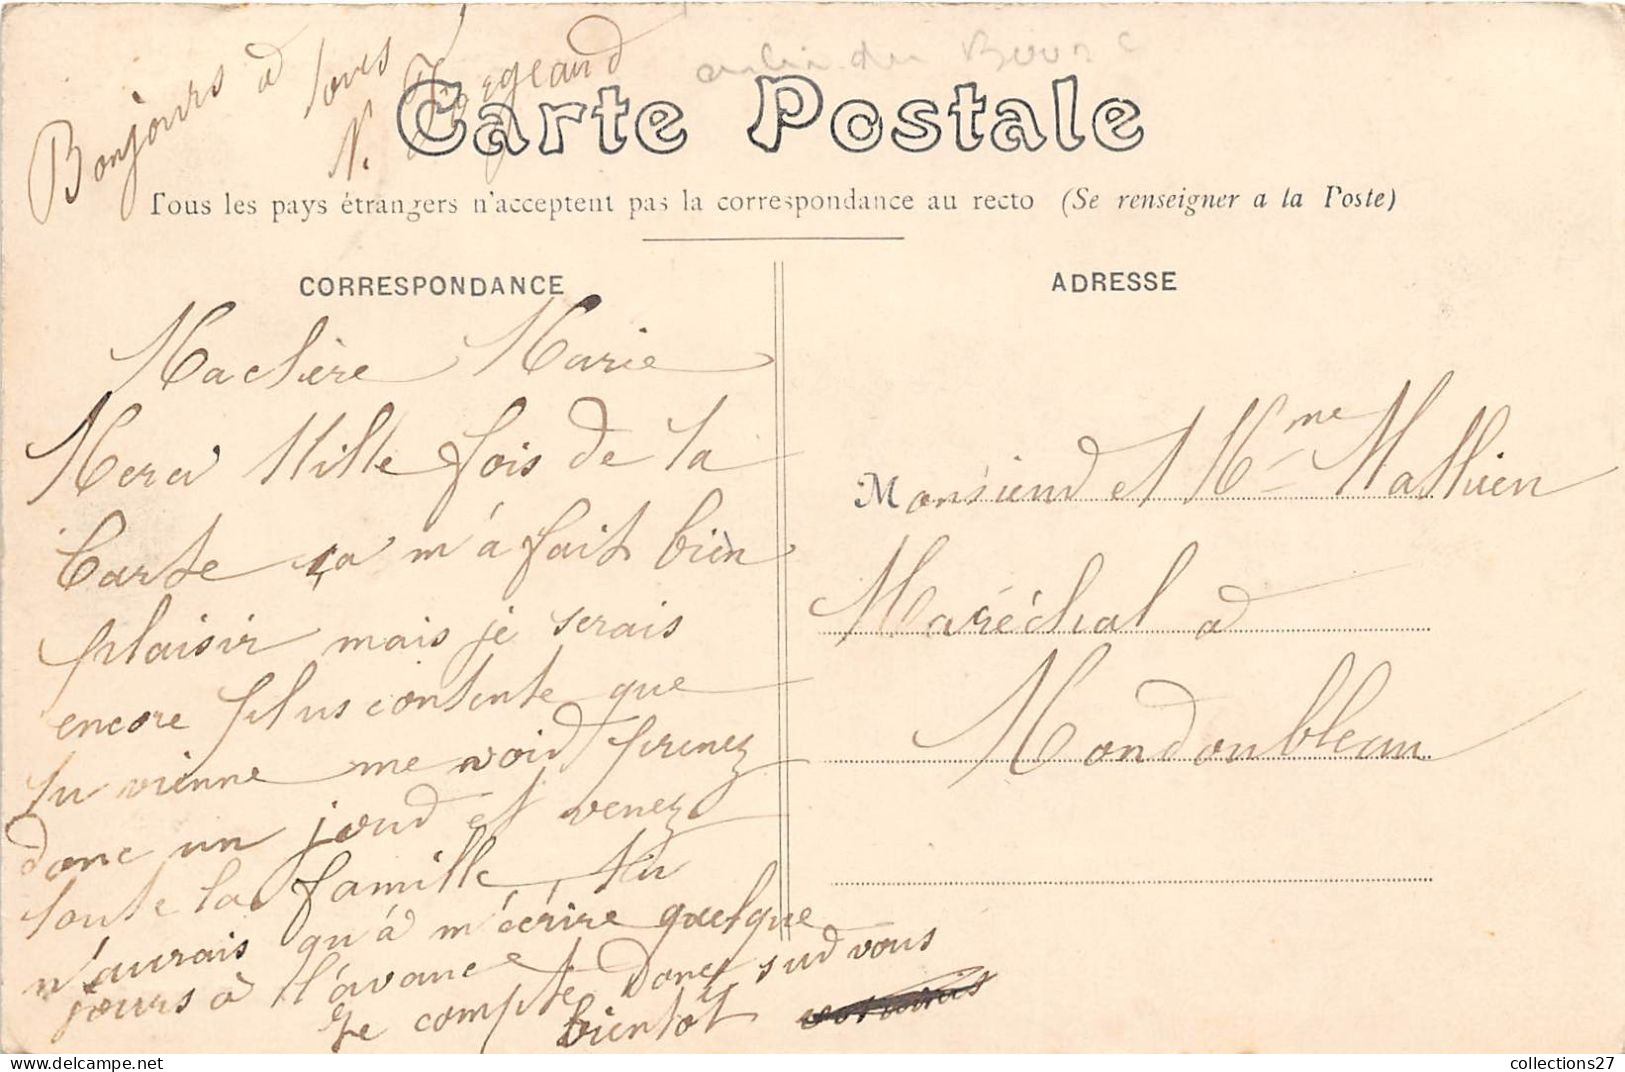 Bonjours à tous
N.
Carte Postale
Tous les pays étrangers n'acceptent pas la correspondance au recto (Se renseigner a la Poste)
CORRESPONDANCE
Machère Marie
Merci Mille fois de la
Carte ça m'a fait bien
plaisir mais je serais
encore plus contente que
tu vienne me voir prenez
donc un jour et venez
toute la famille tu
n'aurais qu'à m'écrire quelque
jours à l'avance
Je compte donc sur vous
bientôt
ADRESSE
Monsieur et Mme Mathieu
Maréchal à
Mondoubleau
collections27